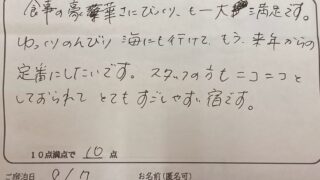 食事の豪華さにびっくり、も一大満足です。
ゆっくりのんびり海にも行けて、もう、来年からの
定番にしたいです。スタッフの方もニコニコと
しておられてとてもすごしやすい宿です。
10点満点で 10 点
ご宿泊日 9/7 お名前(匿名可)